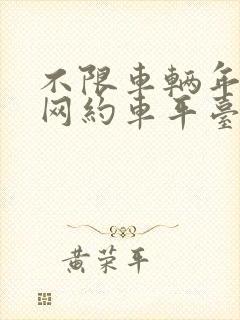 不限車輌年
网約車平臺
黄荣平